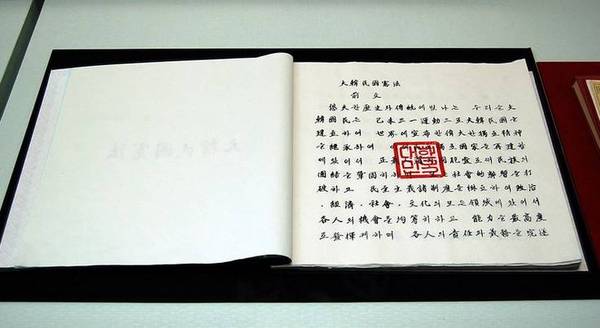 大韓民國憲法
前文
悠久한 歷史와 傳統에 빛나는 우리들 大
韓國民은 己未三一運動으로 大韓民國을
建立하여 世界에 宣布한 偉大한 獨立精神
을 繼承하여 獨立國家를 再建함에
있어서 正義 同胞愛로써 民族의
團結을 鞏固히 하며 社會的 弊習을 打
破하고 民主主義諸制度를 樹立하여 政治
, 經濟, 社會, 文化의 모든 領域에 있어서
各人의 機會를 均等히 하고 能力을 最高度
로 發揮케 하며 各人의 責任과 義務를 完遂